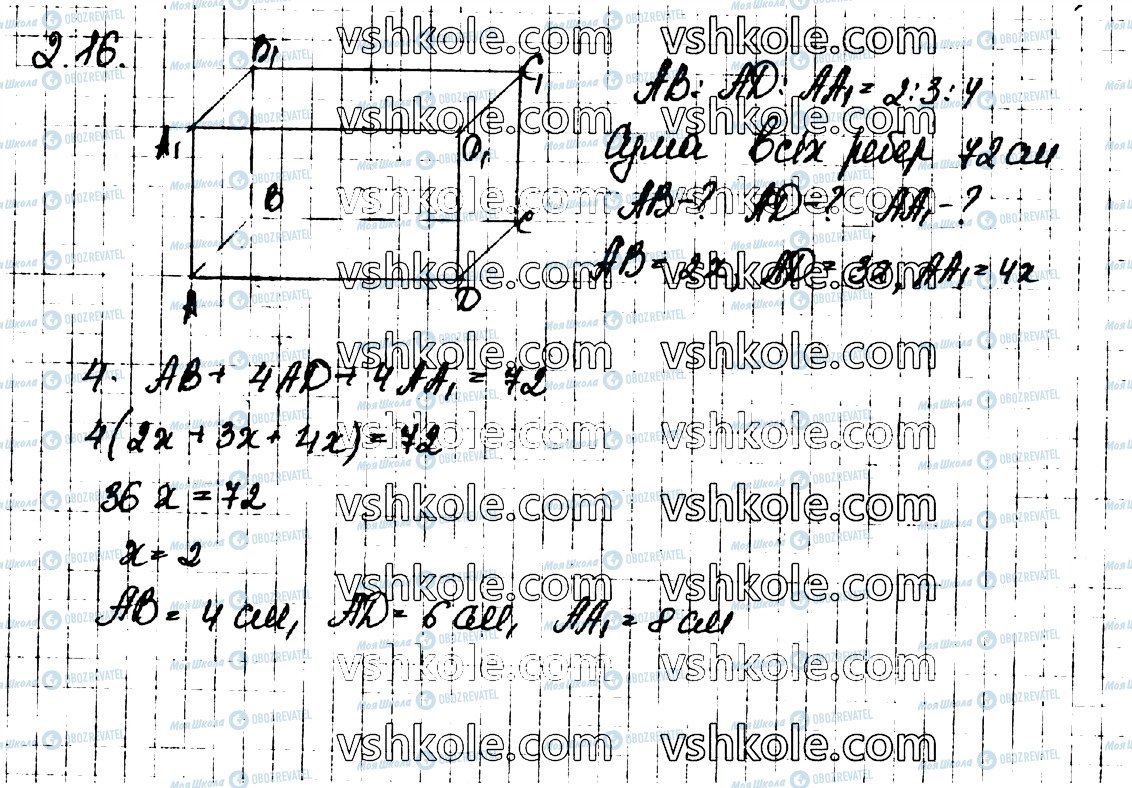 2.16.
B₁ C₁
A₁ D₁
B C
A D
AB : AD : AA₁ = 2:3:4
Сума всіх ребер 72 см
AB - ? AD - ? AA₁ - ?
AB = 2x, AD = 3x, AA₁ = 4x
4 · AB + 4AD + 4AA₁ = 72
4(2x + 3x + 4x) = 72
36 x = 72
x = 2
AB = 4 см, AD = 6 см, AA₁ = 8 см
vshkole.com vshkole.com
vshkole.com vshkole.com
vshkole.com vshkole.com
vshkole.com vshkole.com
vshkole.com vshkole.com
vshkole.com vshkole.com
vshkole.com vshkole.com
vshkole.com vshkole.com
vshkole.com vshkole.com
vshkole.com vshkole.com
Моя Школа OBOZREVATEL